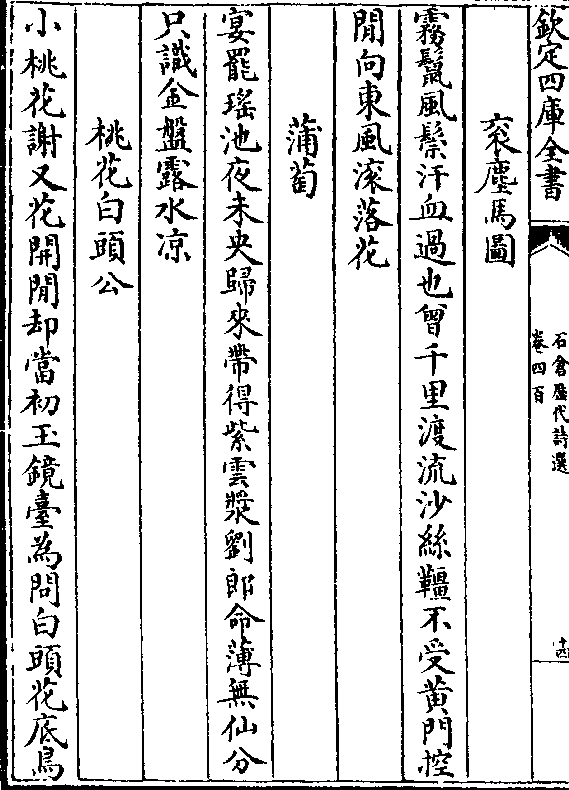 欽定四庫全書
石倉歷代詩選
卷四百
十四
衮塵馬圖
霧鬛風鬃汗血過也曾千里渡流沙絲韁不受黃門控
閒向東風滚落花
蒲萄
宴罷瑶池夜未央歸來帶得紫雲漿劉郎命薄無仙分
只識金盤露水凉
桃花白頭公
小桃花謝又花開閒却當初玉鏡臺為問白頭花底鳥